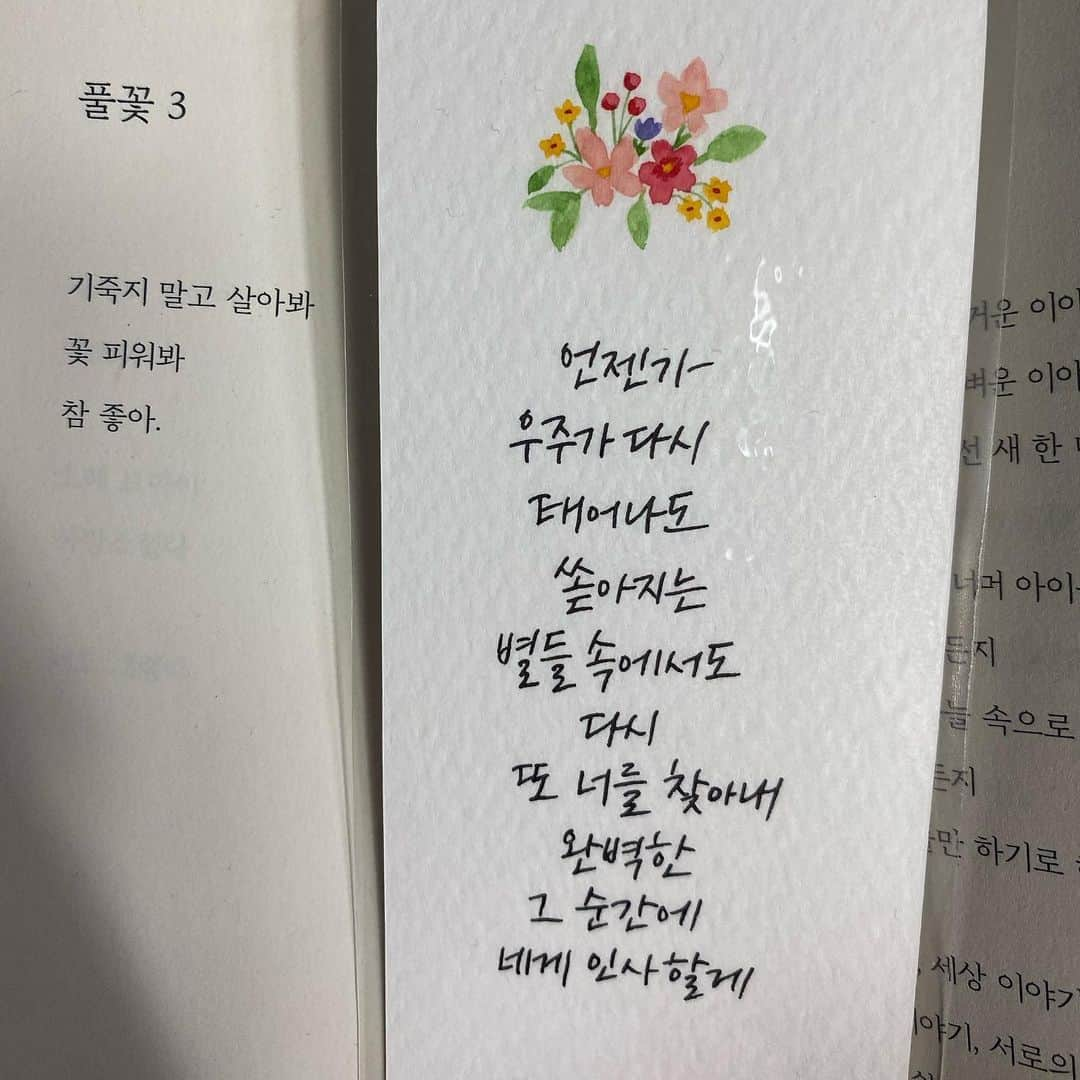 풀꽃 3
기죽지 말고 살아봐
꽃 피워봐
참 좋아.
언젠가
우주가 다시
태어나도
쏟아지는
별들 속에서도
다시
또 너를 찾아내
완벽한
그 순간에
네게 인사할게
이
이
새 한
너머 아이
든지
속으로
든지
하기로
세상 이야기
서로의